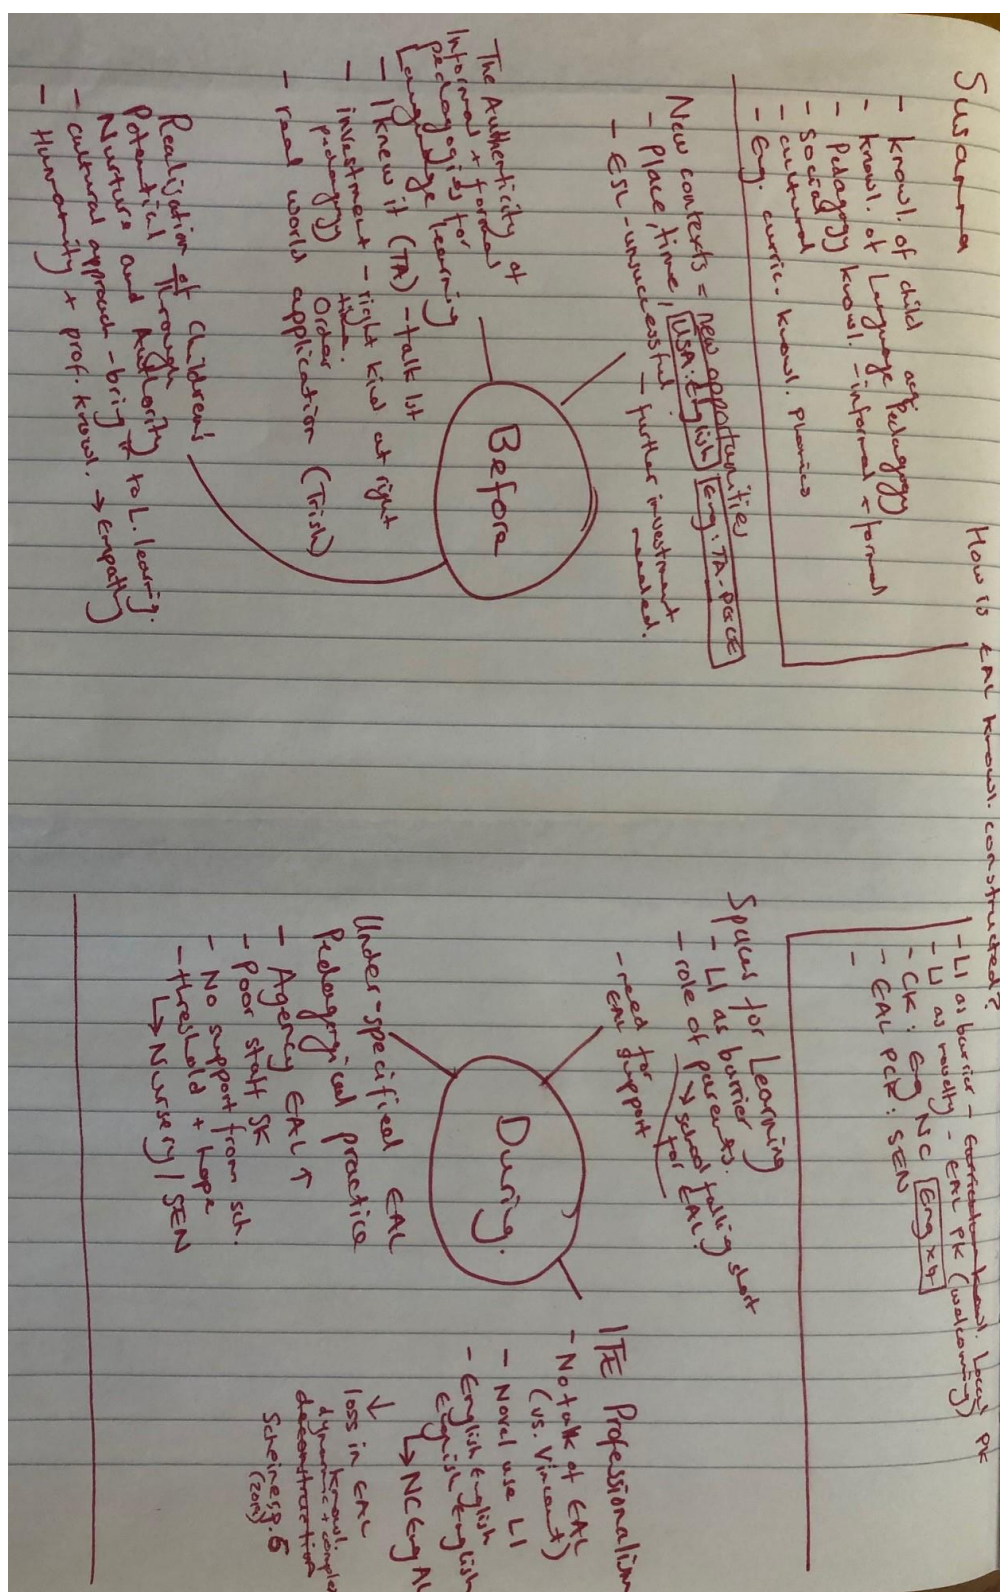 How is EAL knowl. constructed?
Susanna
- knowl. of child acq
- knowl. of Language Pedagogy
- Pedagogy knowl. - informal + formal
- Social
- cultural
- Eng. curric. knowl. Phonics
New contexts = new opportunities
- Place, time, USA: English Eng: TA - PGCE
- ESL - unsuccessful - further investment
needed.
The Authenticity of
Informal + formal
pedagogies for
Language learning
- I knew it (TA) - talk 1st
- investment - right kid at right
pedagogy time.
Order
- real world application (Trish)
Realisation of Children's
Potential through
Nurture and Authority
- cultural approach - bring to L. learning.
- Humanity + prof. knowl. → Empathy
-
Before
- L1 as barrier - knowl. Local PK
- L1 as novelty - EAL PK (welcoming)
- CK: Eng NC Eng x4
- EAL PCK: SEN
-
Spaces for Learning
- L1 as barrier
- role of parents.
→ school falling short
for EAL?
- need for
EAL support
During.
Under-specified EAL
Pedagogical practice
- Agency EAL ↑
- Poor staff SK
- No support from sch.
- threshold + hope
↳ Nursery / SEN
ITE Professionalism
- No talk of EAL
(vs. Vincent)
- Novel use L1
- English English
English English
↳ NC Eng AL
↓
loss in EAL
knowl.
dynamic + complex
deconstruction